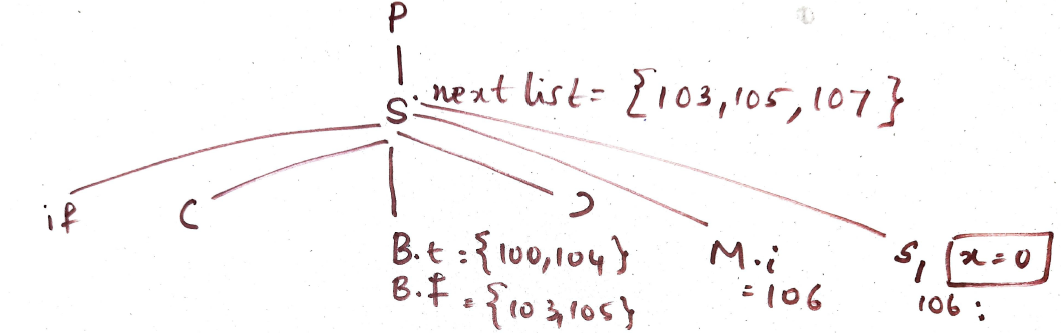 P
S. next list = {103,105,107}
if
(
B.t = {100,104}
B.f = {103,105}
)
M.i
= 106
S₁ x = 0
106: